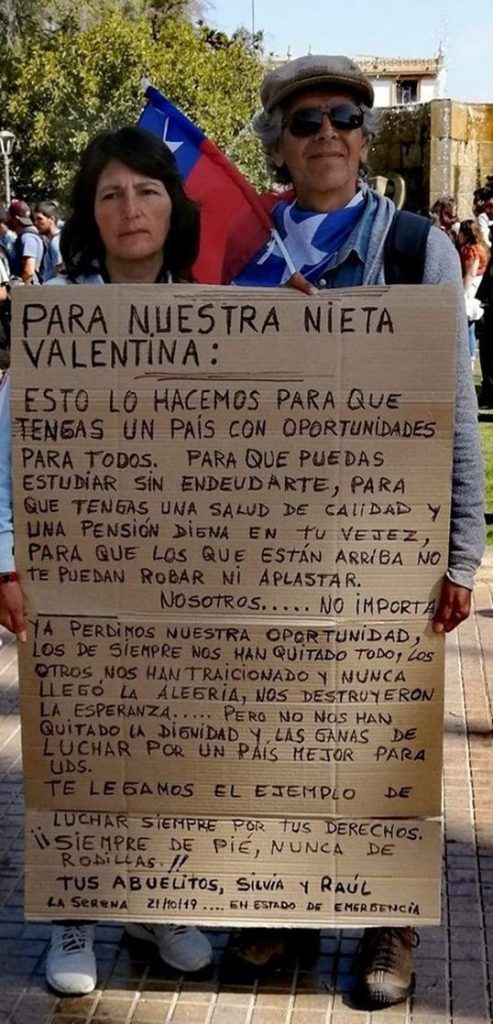 PARA NUESTRA NIETA
VALENTINA:
ESTO LO HACEMOS PARA QUE
TENGAS UN PAÍS CON OPORTUNIDADES
PARA TODOS. PARA QUE PUEDAS
ESTUDIAR SIN ENDEUDARTE, PARA
QUE TENGAS UNA SALUD DE CALIDAD Y
UNA PENSIÓN DIGNA EN TU VEJEZ,
PARA QUE LOS QUE ESTÁN ARRIBA NO
TE PUEDAN ROBAR NI APLASTAR.
NOSOTROS..... NO IMPORTA
YA PERDIMOS NUESTRA OPORTUNIDAD,
LOS DE SIEMPRE NOS HAN QUITADO TODO, LOS
OTROS NOS HAN TRAICIONADO Y NUNCA
LLEGÓ LA ALEGRÍA, NOS DESTRUYERON
LA ESPERANZA..... PERO NO NOS HAN
QUITADO LA DIGNIDAD Y LAS GANAS DE
LUCHAR POR UN PAÍS MEJOR PARA
UDS.
TE LEGAMOS EL EJEMPLO DE
LUCHAR SIEMPRE POR TUS DERECHOS.
¡¡SIEMPRE DE PIÉ, NUNCA DE
RODILLAS.!!
TUS ABUELITOS, SILVIA Y RAÚL
LA SERENA 21/10/19 .... EN ESTADO DE EMERGENCIA